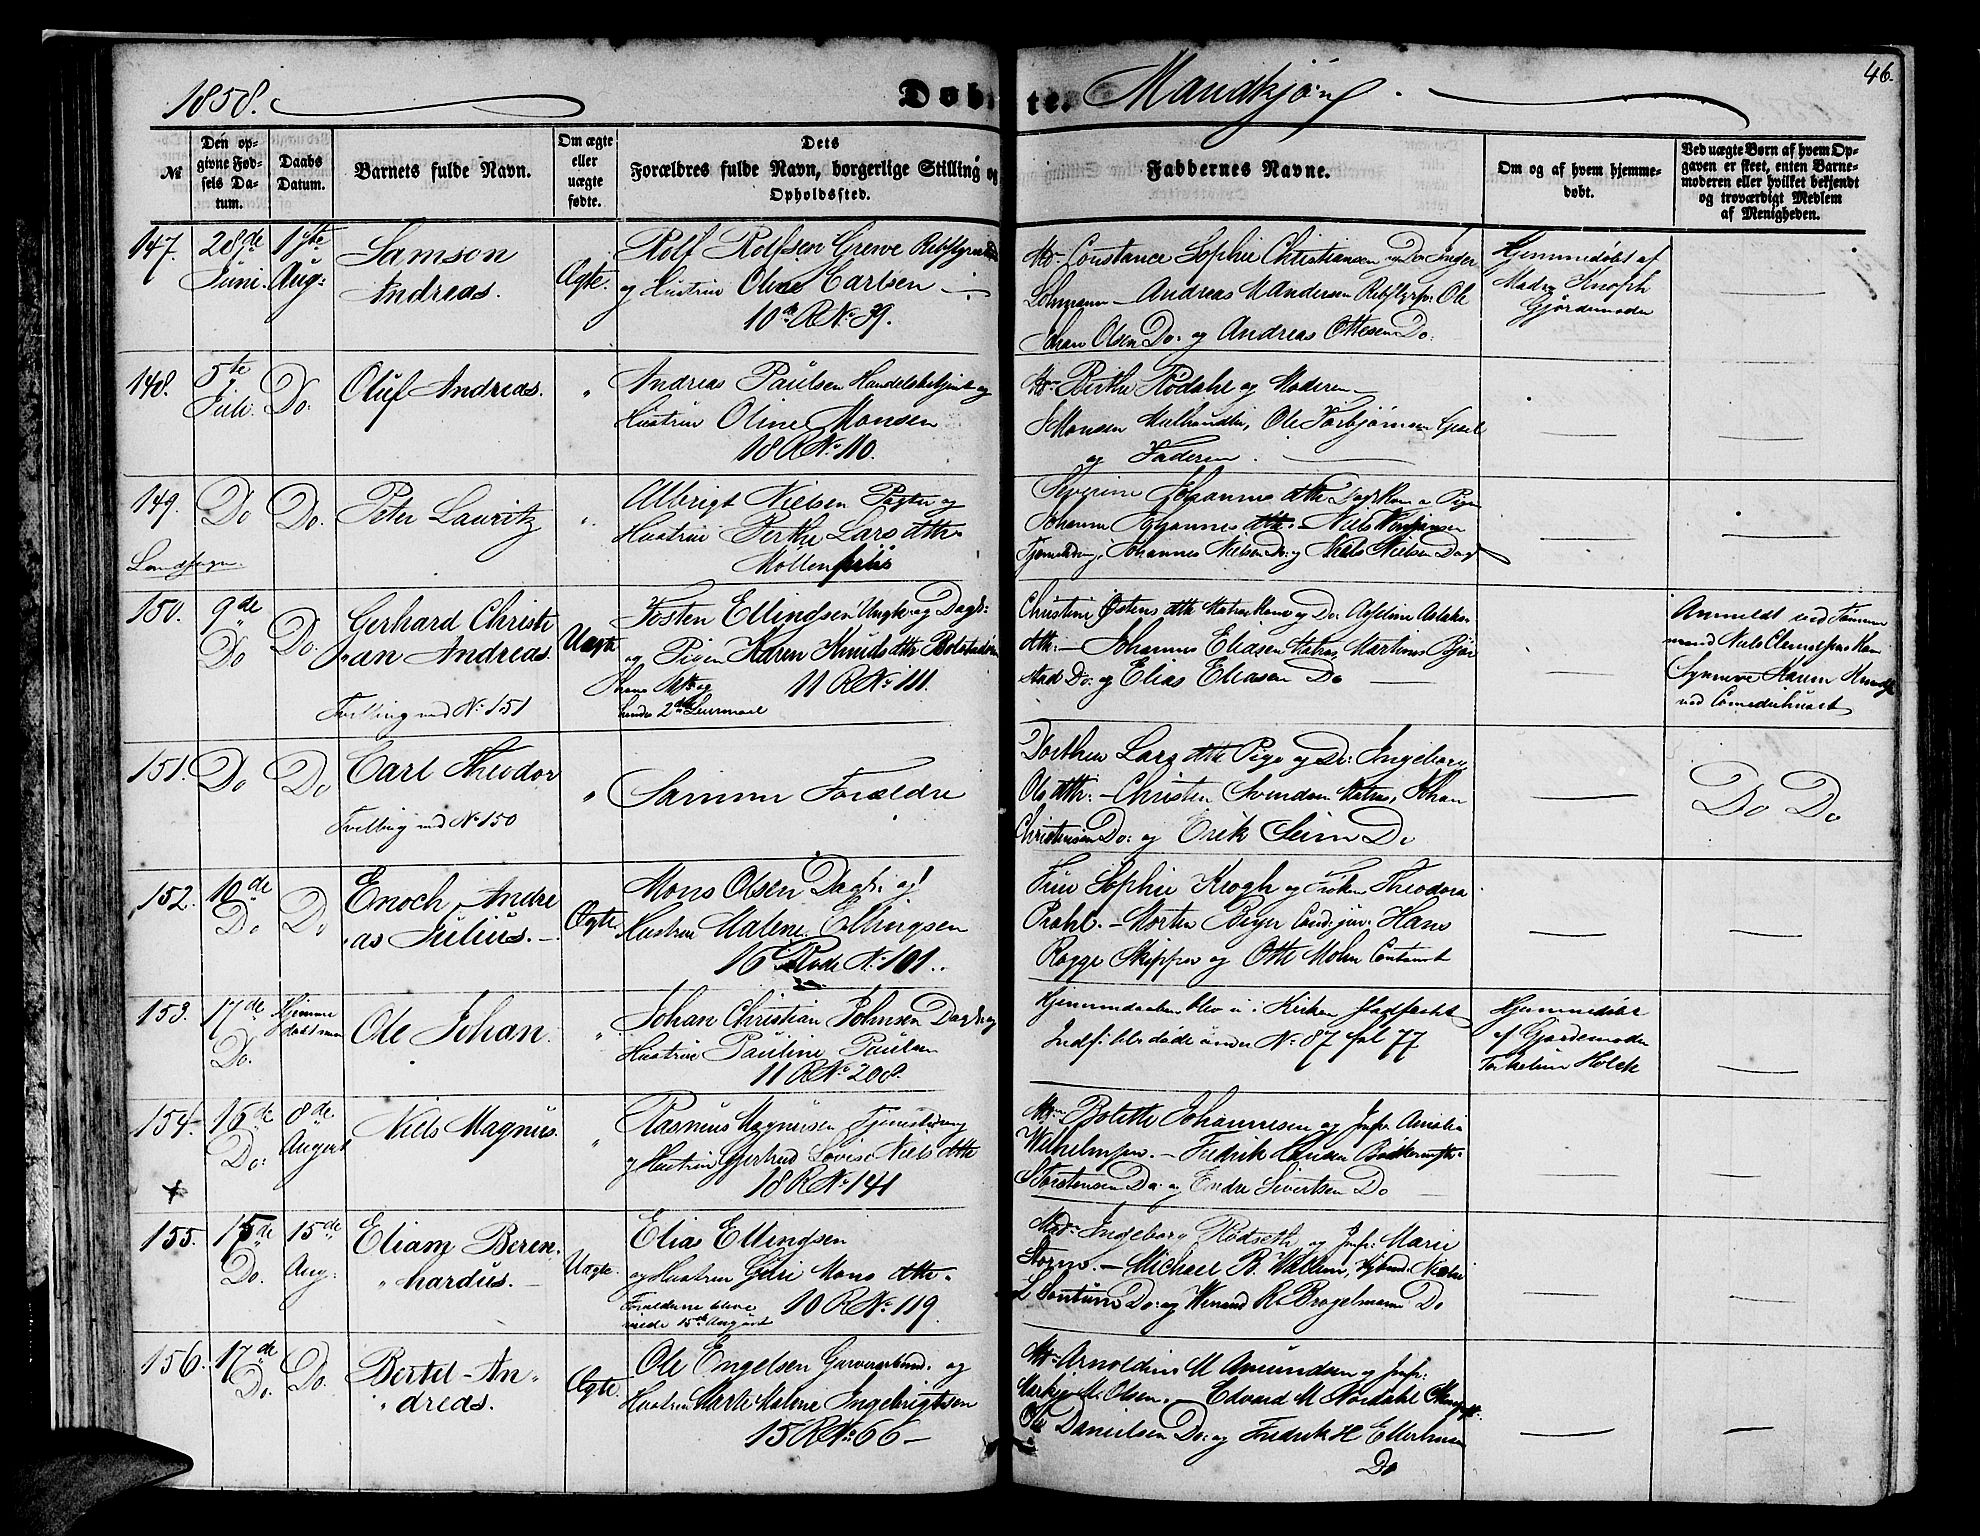 1858.
Døbte. Mandkjøn
46.
№
Den op-
givne Fød-
sels Da-
tum.
Daabs
Datum.
Barnets fulde Navn.
Om ægte
eller
uægte
fødte.
Dets
Forældres fulde Navn, borgerlige Stilling og
Opholdssted.
Faddernes Navne.
Om og af hvem hjemme-
døbt.
Ved uægte Børn af hvem Op-
gaven er skeet, enten Barne-
moderen eller hvilket bekjendt
og troværdigt Medlem
af Menigheden.
147. 28de Juni. 1ste Aug:
Samson
Andreas.
Ægte.
Rolf Rolfsen Grewe
og Hustrue Oline Carlsen
10de R No 39.
Md. Constance Sophie Christiansen og Do Inger
Lohmann - Andreas M Andersen Rebslgr, Ole
Johan Olsen Do: og Andreas Ottesen Do:
Hjemmedøbt af
Madm Knoph
Gjordemoder
148. 5te Juli. Do:
Oluf Andreas.
"
Andreas Paulsen Handelsbetjent og
Hustrue Oline Monsen
18 R No 110.
Md. Berthe Rødahl og Moderen
Monsen Melhandler, Ole Torbjørnsen
og Faderen.
149. Do Do.
Landsogn
Peter Lauritz
"
Albrigt Nielsen og
Hustrue Berthe Lars dtr
Møllenpriis
Severine Johannes dtr og Pige
Johanne Johannes dtr. - Niels
Johannes Nielsen Do: og Niels Nielsen Dagk
150. 9de Do Do.
Gerhard Christi
"an Andreas.
Tvilling med No 151
Uægte
Tosten Ellingsen Ungk: og Dagk:
og Pigen Karen Knuds dtr
11 R No 111.
hans 1ste og
hendes 2det Leiermaal
Christine Østens dtr Matros Kone og Do
dtr: - Johannes Eliasen Matros, Martinus
Do: og Elias Eliasen Do
Anmeldt ved Tømmer
mand Niels Clemetsens Kone
Synneve Karen
ved Comediehuset
151. Do Do
Carl Theodor
Tvilling med No 150
"
Samme Forældre
Dorthea Lars dtr Pige og Do: Ingeborg
Ole dtr: - Christen Svendsen Matros, Johan
Christensen Do: og Erik Seim Do
Do Do
152. 10de Do Do
Enoch Andre
"as Julius.
Ægte
Mons Olsen Dagk: og
Hustrue Malene Ellingsen
16 Rode No 101.
Frue Sophie Krogh og Frøken Theodora
Prahl. - Morten Beyer Cand: jur: Hans
Rogge Skipper og Otto Mohn Contorist
153. 17de Do.
Hjemme
døbt
Ole Johan.
"
Johan Christian Johnsen Dagk: og
Hustrue Pauline Paulsen
11 R No 208.
Hjemmedaaben blev ei i Kirken stadfæstet
Indf: blt døde under No 87 fol 77
Hjemmedøbt
af Gjordemoder
Holck
154. 16de Do: 8de August
Niels Magnus.
"
Rasmus Magnusen
og Hustrue Gjertrud Lovise Niels dtr
18 R No 141
Md. Bolette Johannesen og Jnfr. Amalia
Wilhelmsen. - Fredrik Hansen
Torstensen Do: og Endre Sivertsen Do
155. 15de Do. 15de Aug:
Eliam Beren
"hardus.
Uægte.
Elias Ellingsen
og Hustrue Guri Mons dtr.
Forældrene bleve
viede 15de August
10 R No 119.
Mad: Ingeborg Rødseth og Jnfr: Marie
Storm. - Michael B. Wallem,
L Sontum Do: og Wenand R. Brøgelmann Do
156. 17de Do. Do.
Bertel An
"dreas.
Ægte.
Ole Engelsen Garverarbmd. og
Hustrue Marte Malene Ingebrigtsen
15 R No 66
Md. Arnoldine M Amundsen og Jnfr:
M. Olsen. - Edvard M Nordahl
Ole Danielsen Do: og Fredrik H Ellerhusen
Do